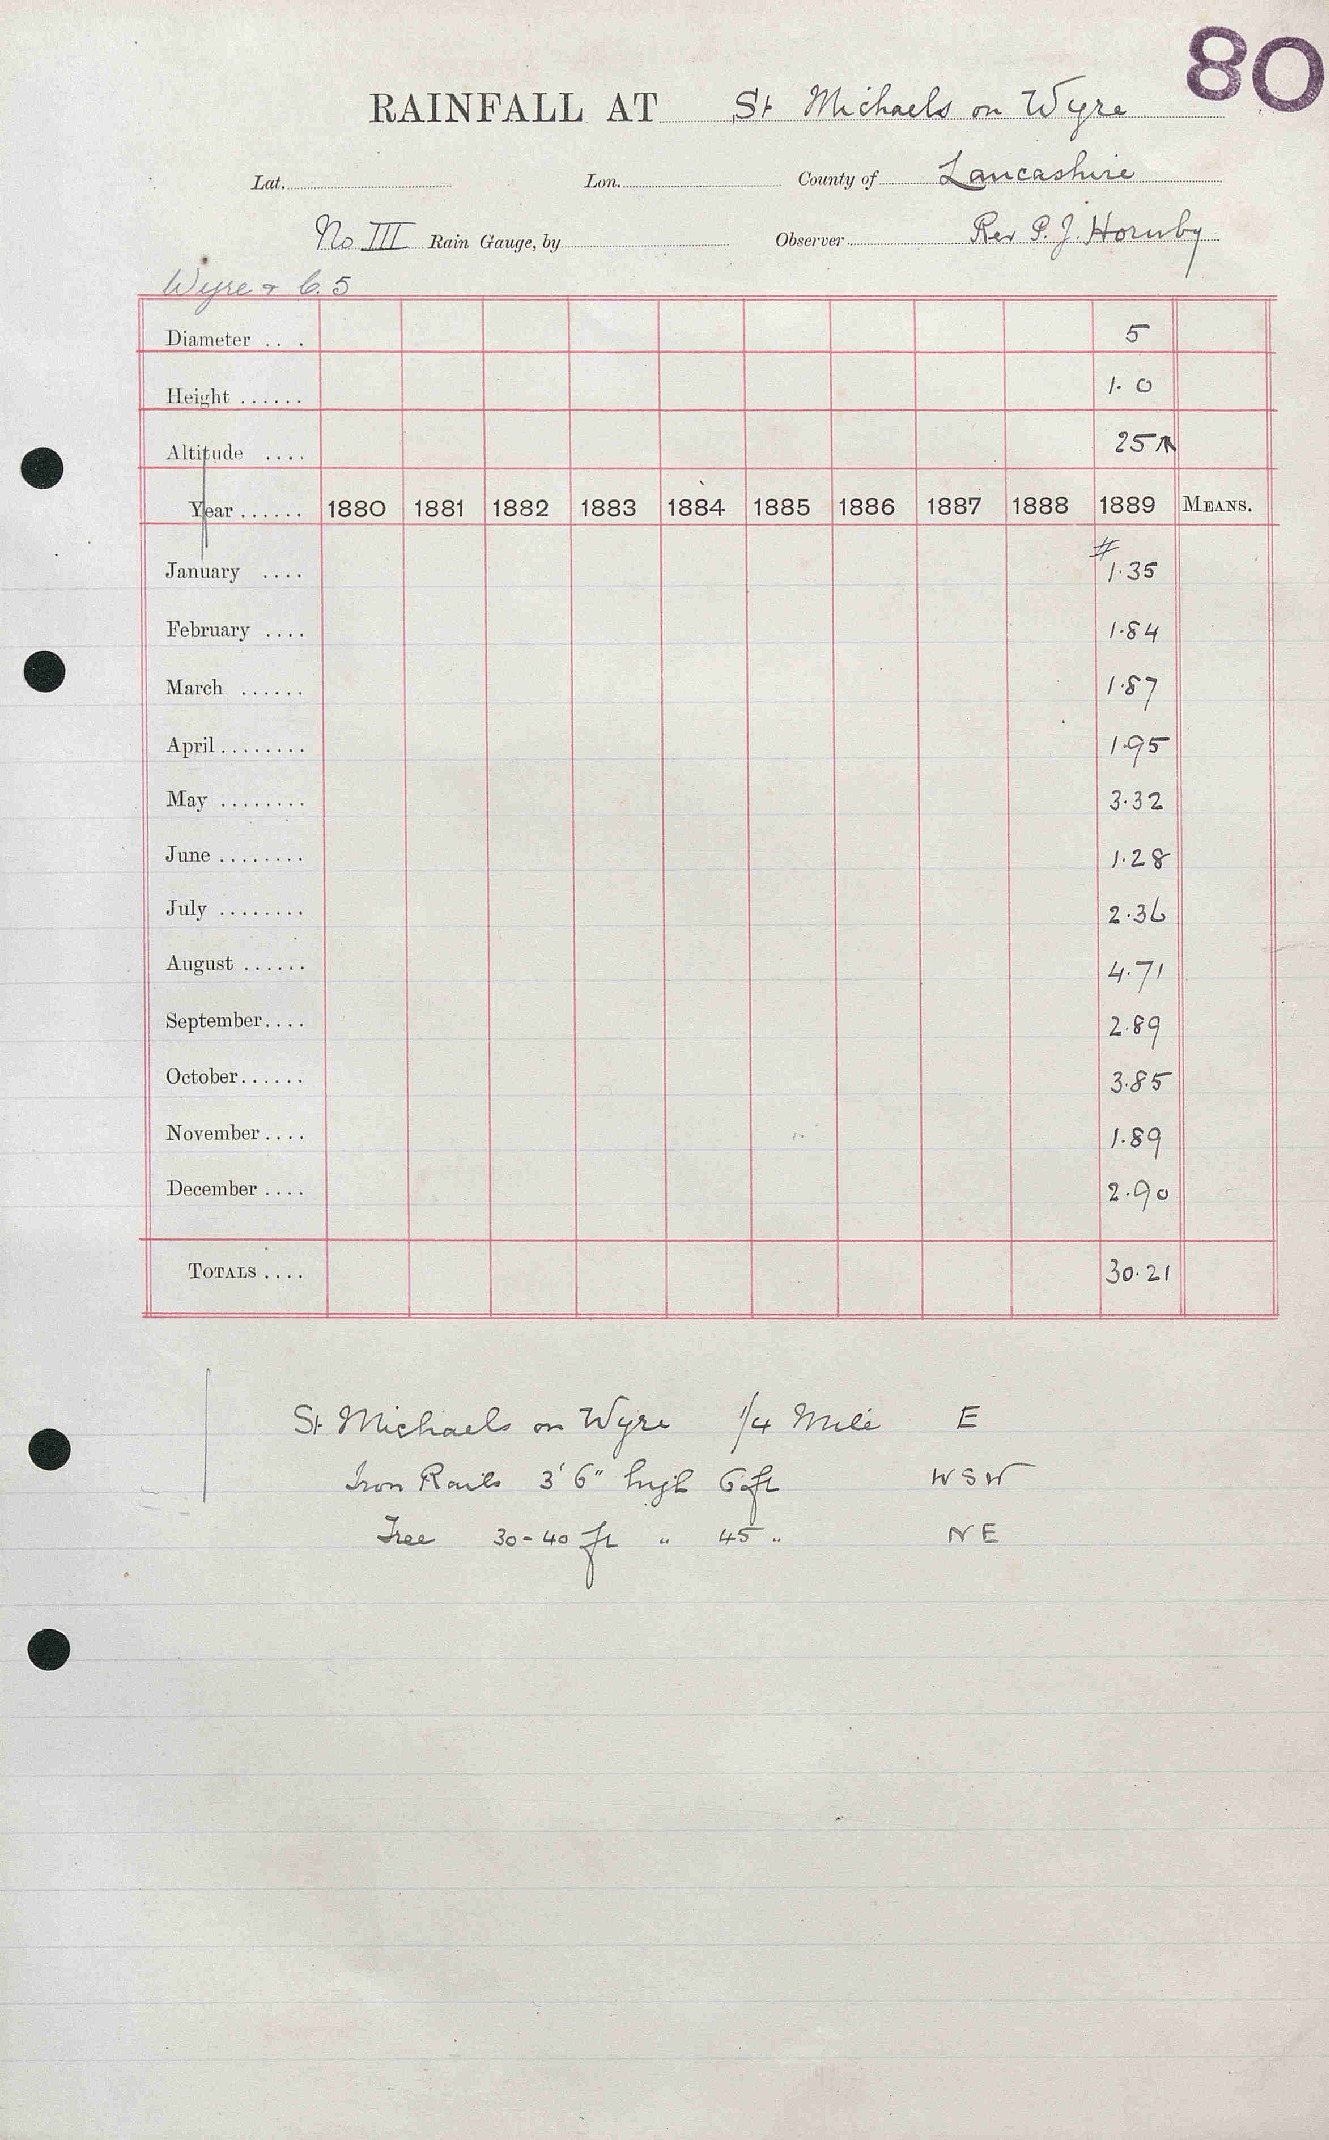 80
RAINFALL AT St Michaels on Wyre
Lat. Lon. County of Lancashire
No III Rain Gauge, by Observer Rev P. J. Hornby
Wyre & C. 5
Diameter .. . 5
Height ...... 1. 0
Altitude .... 25
Year ...... 1880 1881 1882 1883 1884 1885 1886 1887 1888 1889 MEANS.
January .... # 1.35
February .... 1.84
March ...... 1.87
April ........ 1.95
May ........ 3.32
June ........ 1.28
July ........ 2.36
August ...... 4.71
September.... 2.89
October...... 3.85
November.... 1.89
December .... 2.90
TOTALS .... 30.21
St Michaels on Wyre 1/4 Mile E
Iron Rails 3' 6" high 6 ft WSW
Tree 30-40 ft " 45 " NE